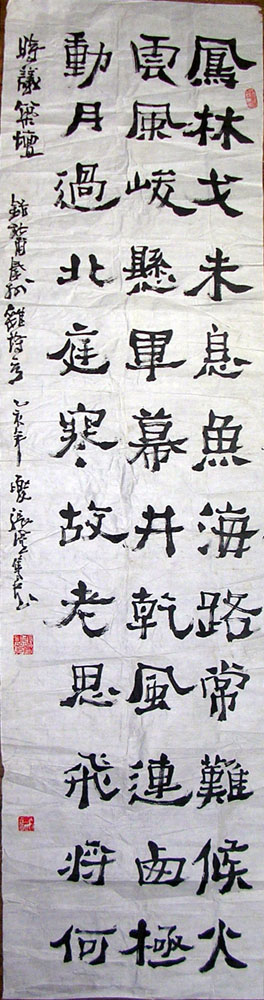 鳳林戈未息魚海路常難候火
雲風峻懸軍幕井乾風連西極
動月過北庭寒故老思飛將何
時議築壇 錄杜甫秦州雜詩 乙亥年夏 張